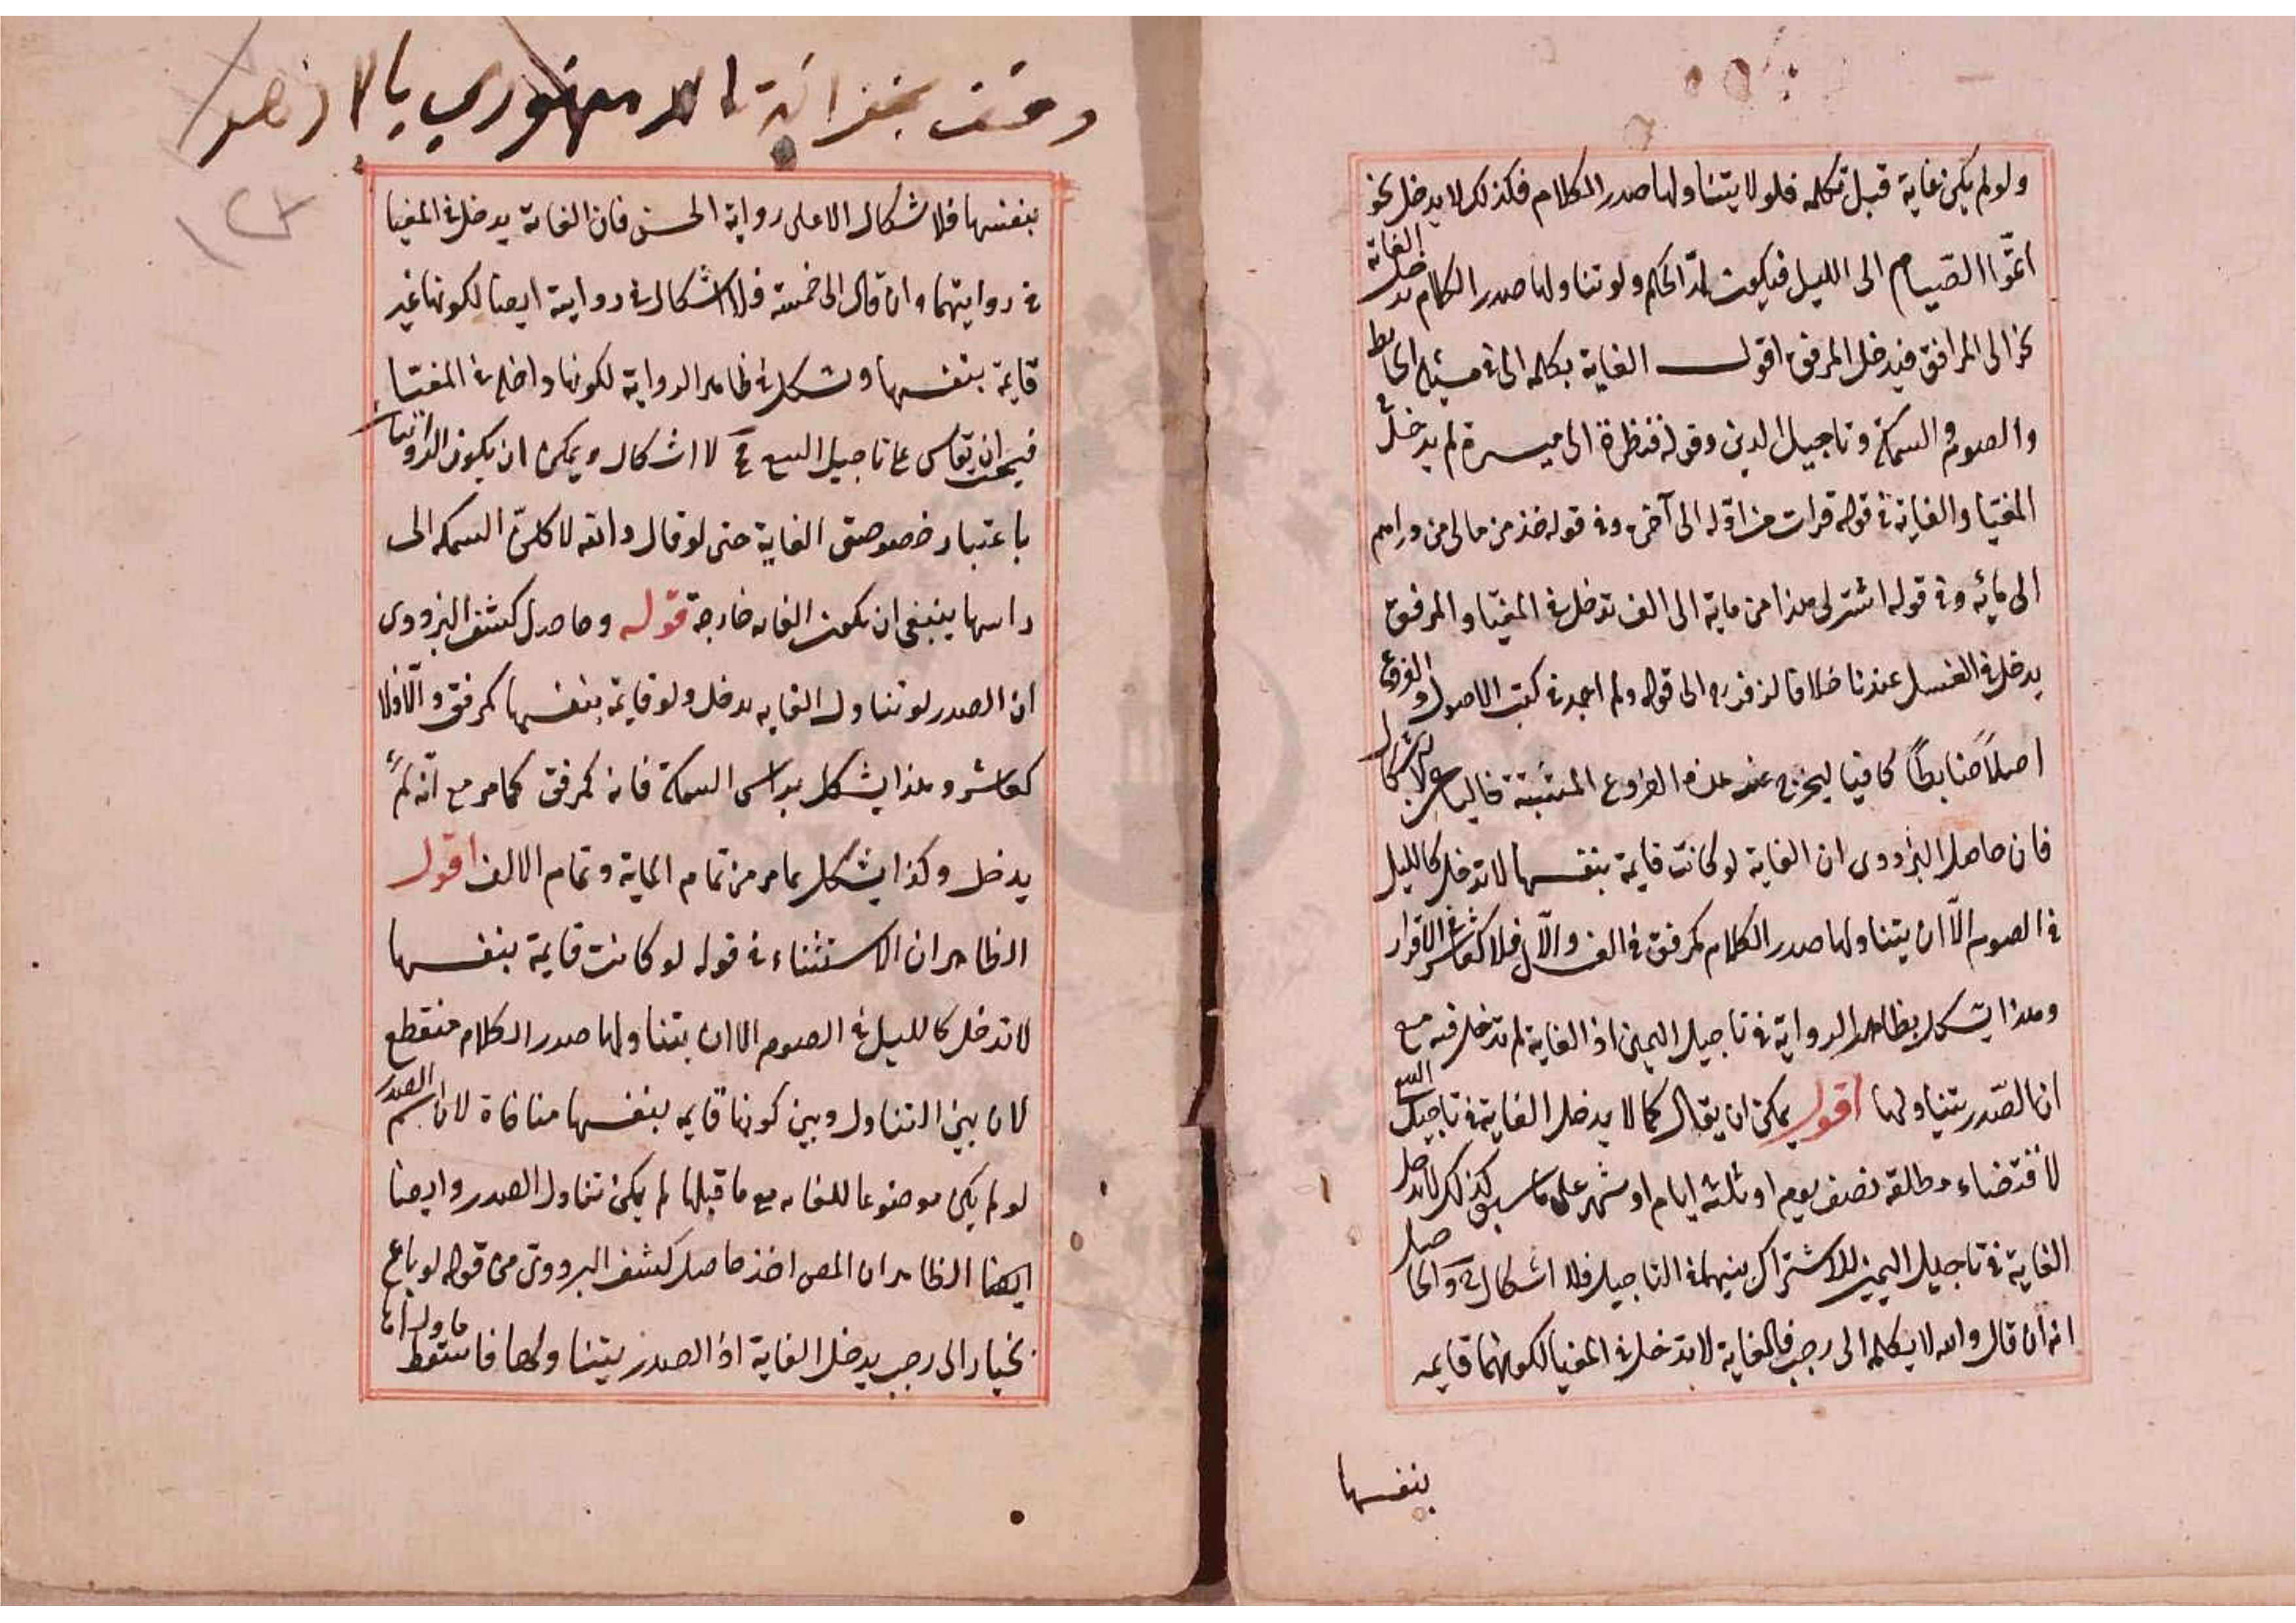 ولو لم يكن غاية قبل تكلمه فلو لا يتناولها صدر الكلام فكذلك لا يدخل نحو
اتمّوا الصّيام الى الليل فيكون لمدّ الحكم ولو تناولها صدر الكلام تدخل الغاية
نحو الى المرافق فيدخل المرفق اقول الغاية بكلمه الى في مسئلة الحايط
والصوم والسمكة وتاجيل الدين وقوله فنظرة الى ميسرة لم يدخل في
المغيّا والغاية في قوله قرات من اوّله الى آخره وفي قوله خذ من مالي من دراهم
الى مائه وفي قوله اشتر لي هذا من ماية الى الف تدخل في المغيّا والمرفق
يدخل في الغسل عندنا خلافا لزفر ره الى قوله ولم اجد في كتب الاصول والفروع
اصلاً ضابطاً كافيا ليخرج عنه هذه الفروع
فان حاصل البزدوى ان الغاية لو كانت قايمة بنفسها لا تدخل كالليل
في الصوم الّا ان يتناولها صدر الكلام كمرفق في الف والّا فلا كعاشر في الاقرار
وهذا يشكل بظاهر الرواية في تاجيل اليمين اذ الغاية لم تدخل فيه مع
ان الصّدر يتناولها اقول يمكن ان يقال كما لا يدخل الغاية في تاجيل البيع
لاقتضاء مطالقه نصف يوم او ثلثة ايام او شهر على ما سبق كذلك لا تدخل
الغاية في تاجيل اليمين للاشتراك بينهما في التاجيل فلا اشكال والحاصل
انه ان قال والله لا يكلمه الى رجب فالغاية لا تدخل في المغيا لكونها قايمه
بنفسها
وقف بخزانة الدمنهوري بالازهر
بنفسها فلا اشكال الا على رواية الحسن فان الغاية يدخل في المغيا
في روايتهما وان قال الى خمسة فلا اشكال في رواية ايضا لكونها غير
قايمة بنفسها ويشكل في ظاهر الرواية لكونها داخلة في المغيّا
ان يقاس على تاجيل البيع لا اشكال ويمكن ان يكون
باعتبار خصوصية الغاية حتى لو قال والله لا كلنّ السمكه الى
راسها ينبغي ان تكون الغايه خارجة قوله وحاصل كشف البزدوى
ان الصدر لو تناول الغايه يدخل ولو قايمة بنفسها كمرفق والّا فلا
كعاشر وهذا يشكل براس السمكة فانه كمرفق كما مر مع انّه لم
يدخل وكذا يشكل بما مر من تمام الماية وتمام الالف اقول
الظاهر ان الاستثناء في قوله لو كانت قايمة بنفسها
لا تدخل كالليل في الصوم الا ان يتناولها صدر الكلام منقطع
لان بين التناول وبين كونها قايمه بنفسها منافاة لان اسم الصدر
لو لم يكن موضوعا للغايه مع ما قبلها لم يكن تناول الصدر وايضا
ايضا الظاهر ان المص اخذ حاصل كشف البزدوىّ من قوله لو باع
بخيار الى رجب يدخل الغاية اذ الصدر يتناولها فاسقط ما وراها